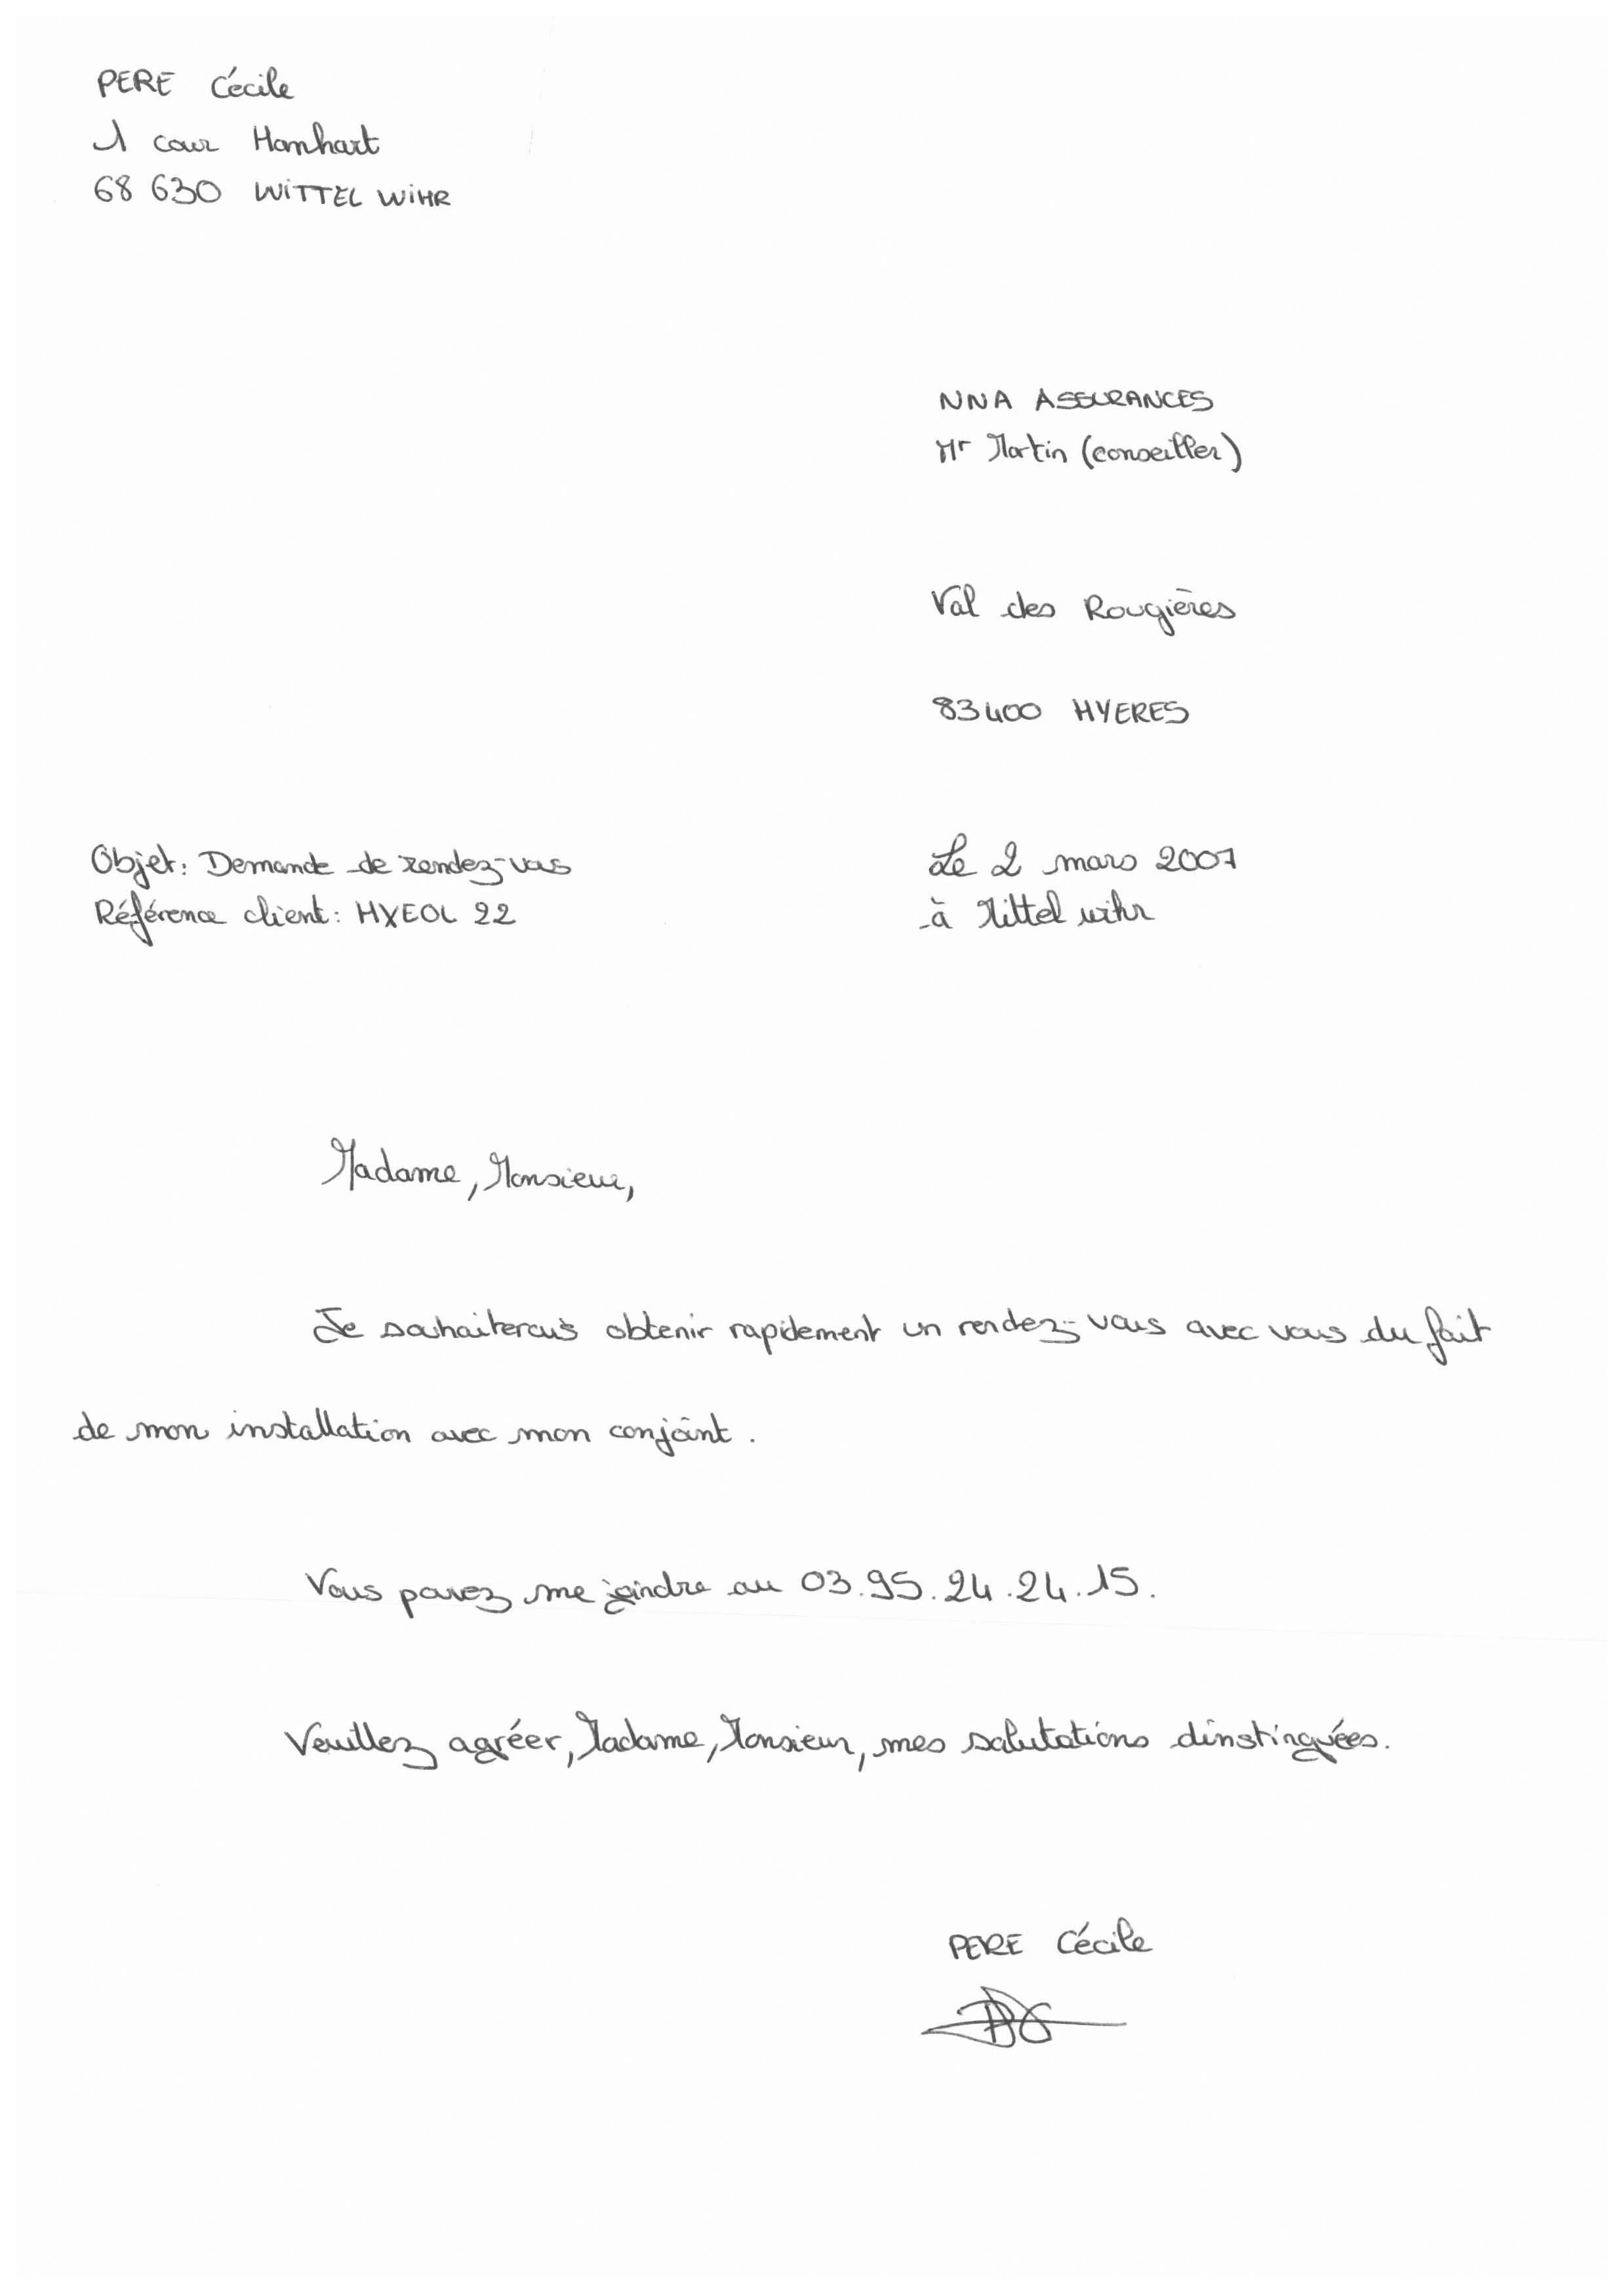 PERE Cécile
1 cour Homhart
68 630 WITTEL WIHR
NNA ASSURANCES
Mr Martin (conseiller)
Val des Rougières
83400 HYERES
Objet: Demande de rendez-vous
Le 2 mars 2007
Référence client: HXEOL 22
à Mittel wihr
Madame, Monsieur,
Je souhaiterais obtenir rapidement un rendez-vous avec vous du fait
de mon installation avec mon conjoint.
Vous pouvez me joindre au 03.95.24.24.15.
Veuillez agréer, Madame, Monsieur, mes salutations dinstinguées.
PERE Cécile